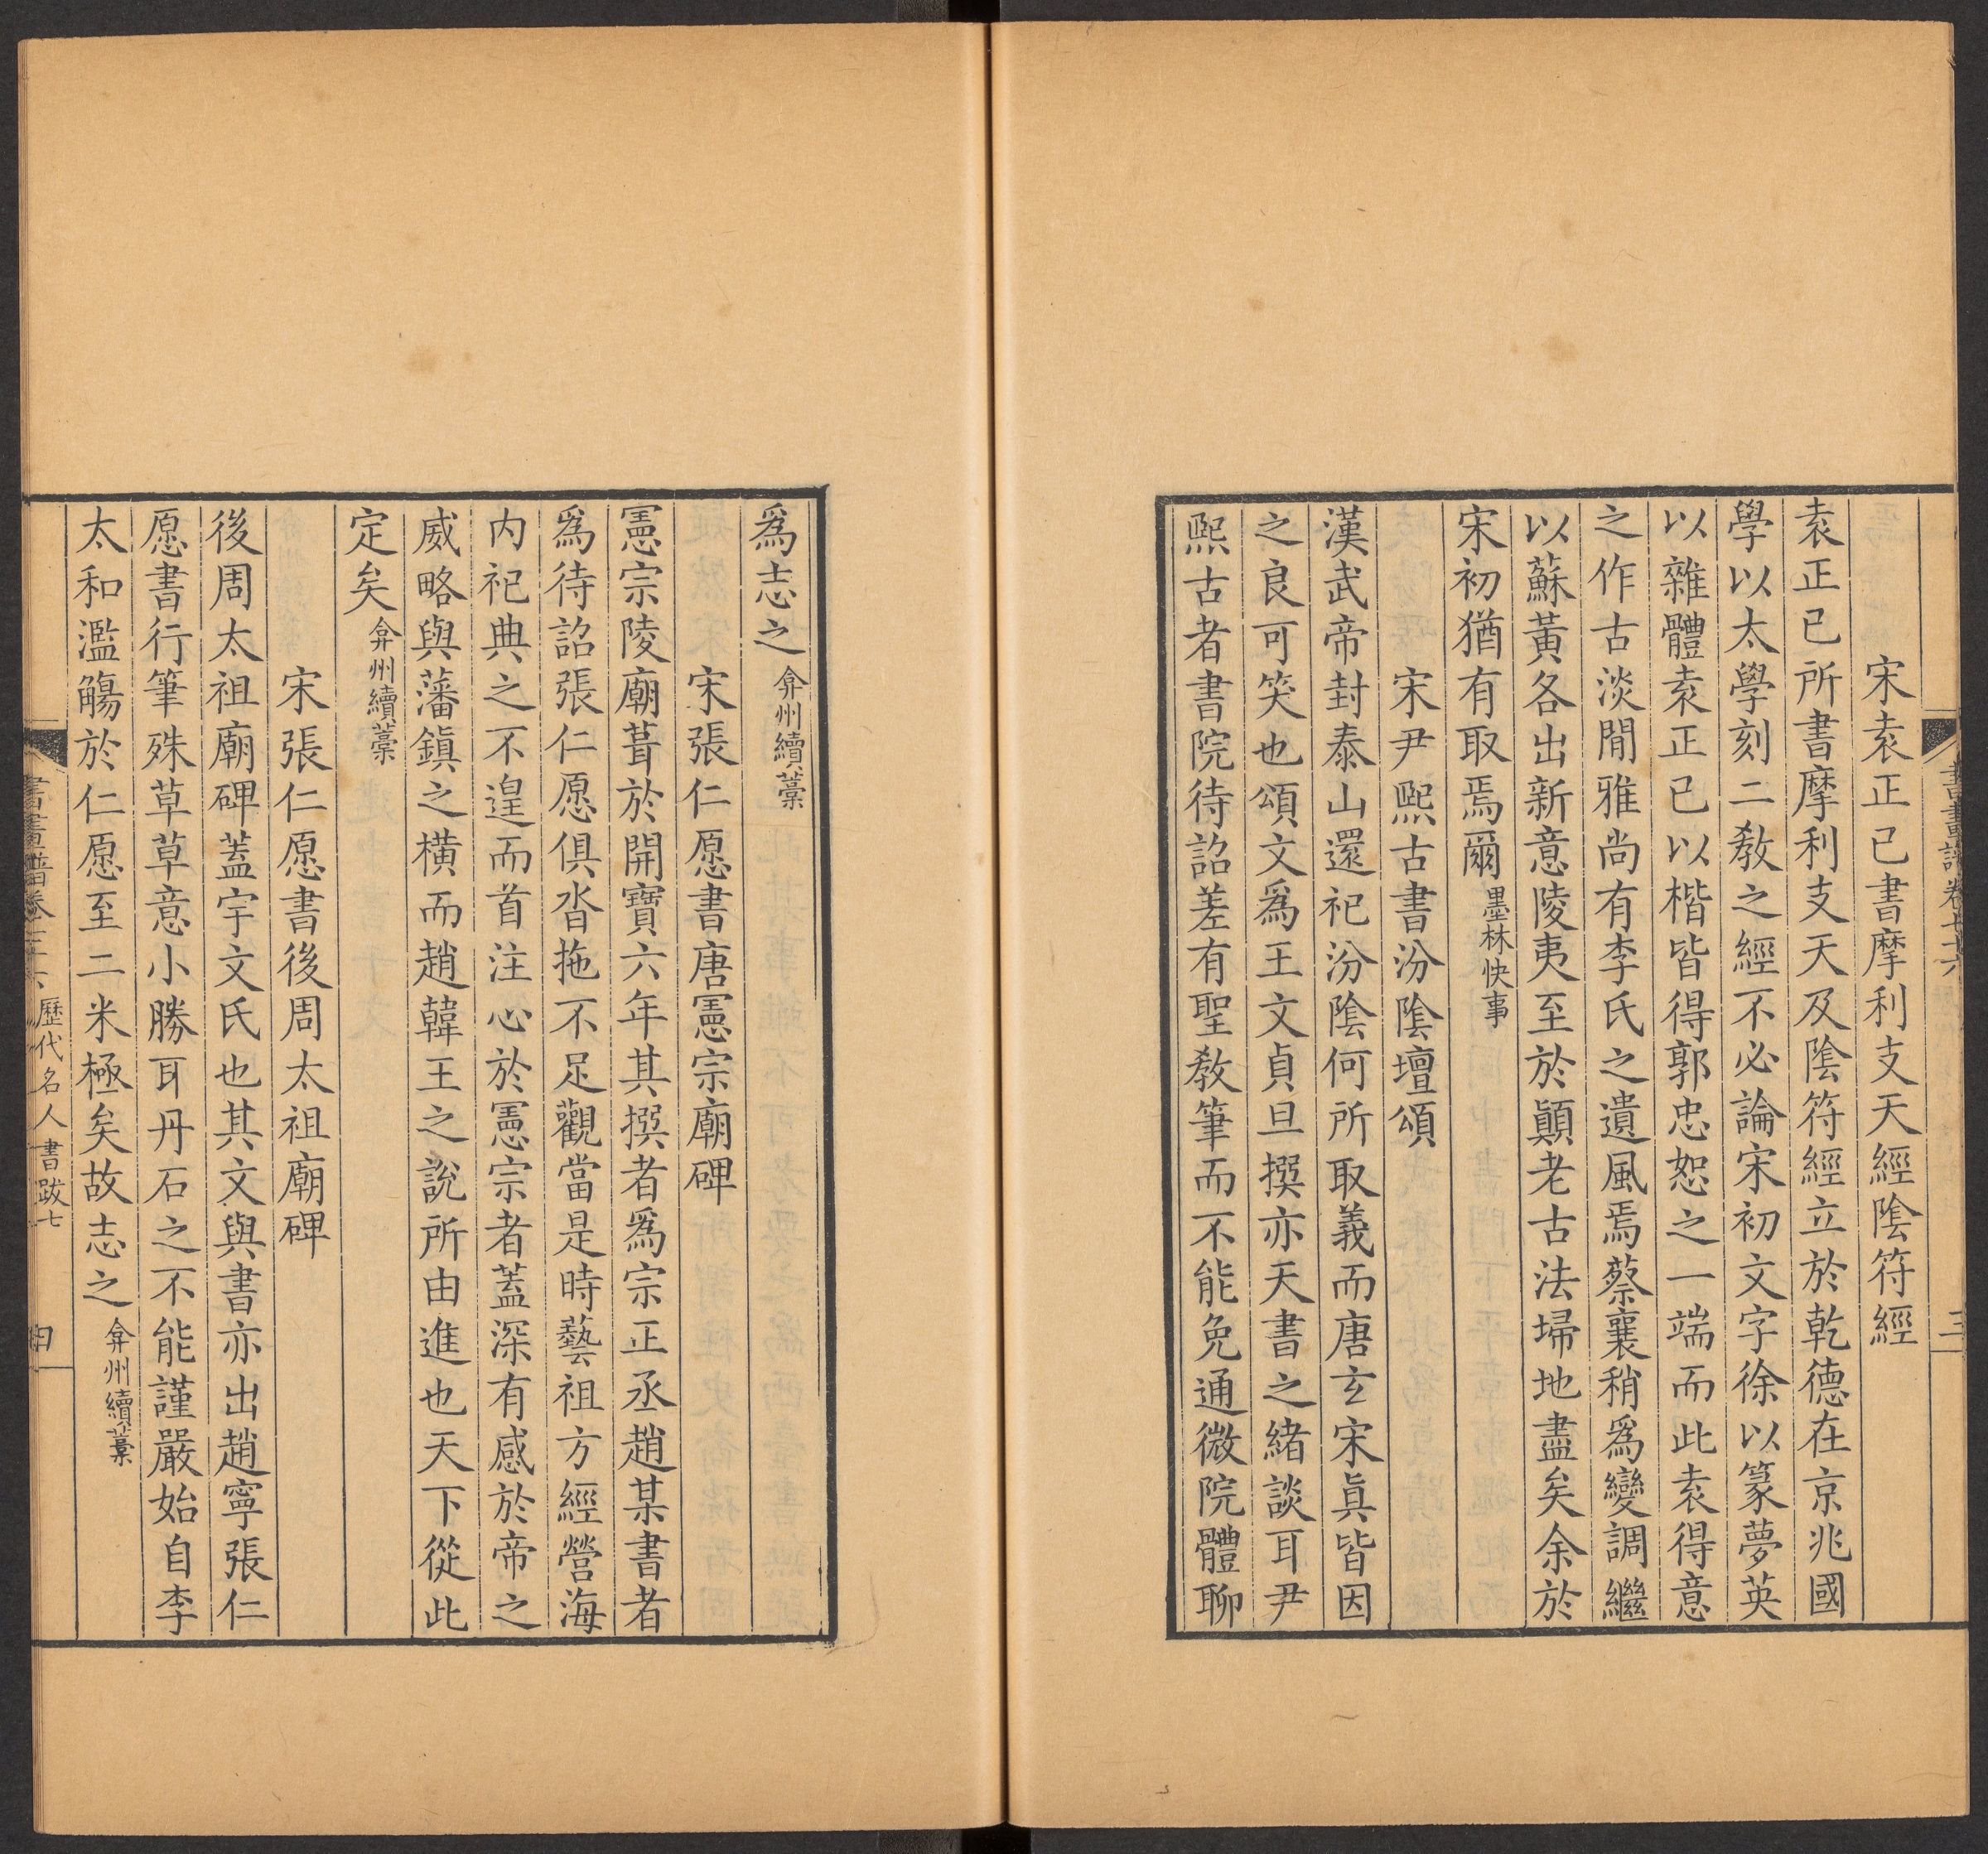 書畫譜卷七十六
三
宋袁正己書摩利支天經陰符經
袁正已所書摩利支天及陰符經立於乾德在京兆國
學以太學刻二教之經不必論宋初文字徐以篆夢英
以雜體袁正已以楷皆得郭忠恕之一端而此袁得意
之作古淡閒雅尚有李氏之遺風焉蔡襄稍爲變調繼
以蘇黃各出新意陵夷至於顚老古法埽地盡矣余於
宋初猶有取焉爾墨林快事
宋尹熙古書汾陰壇頌
漢武帝封泰山還祀汾陰何所取義而唐玄宋眞皆因
之良可笑也頌文爲王文貞旦撰亦天書之緒談耳尹
熙古者書院待詔差有聖教筆而不能免通微院體聊
爲志之弇州續藁
宋張仁愿書唐憲宗廟碑
憲宗陵廟葺於開寶六年其撰者爲宗正丞趙某書者
爲待詔張仁愿俱沓拖不足觀當是時藝祖方經營海
内祀典之不遑而首注心於憲宗者蓋深有感於帝之
威略與藩鎭之橫而趙韓王之說所由進也天下從此
定矣弇州續藁
宋張仁愿書後周太祖廟碑
後周太祖廟碑蓋宇文氏也其文與書亦出趙寧張仁
愿書行筆殊草草意小勝耳丹石之不能謹嚴始自李
太和濫觴於仁愿至二米極矣故志之弇州續藁
書畫譜卷七十六 歷代名人書跋七